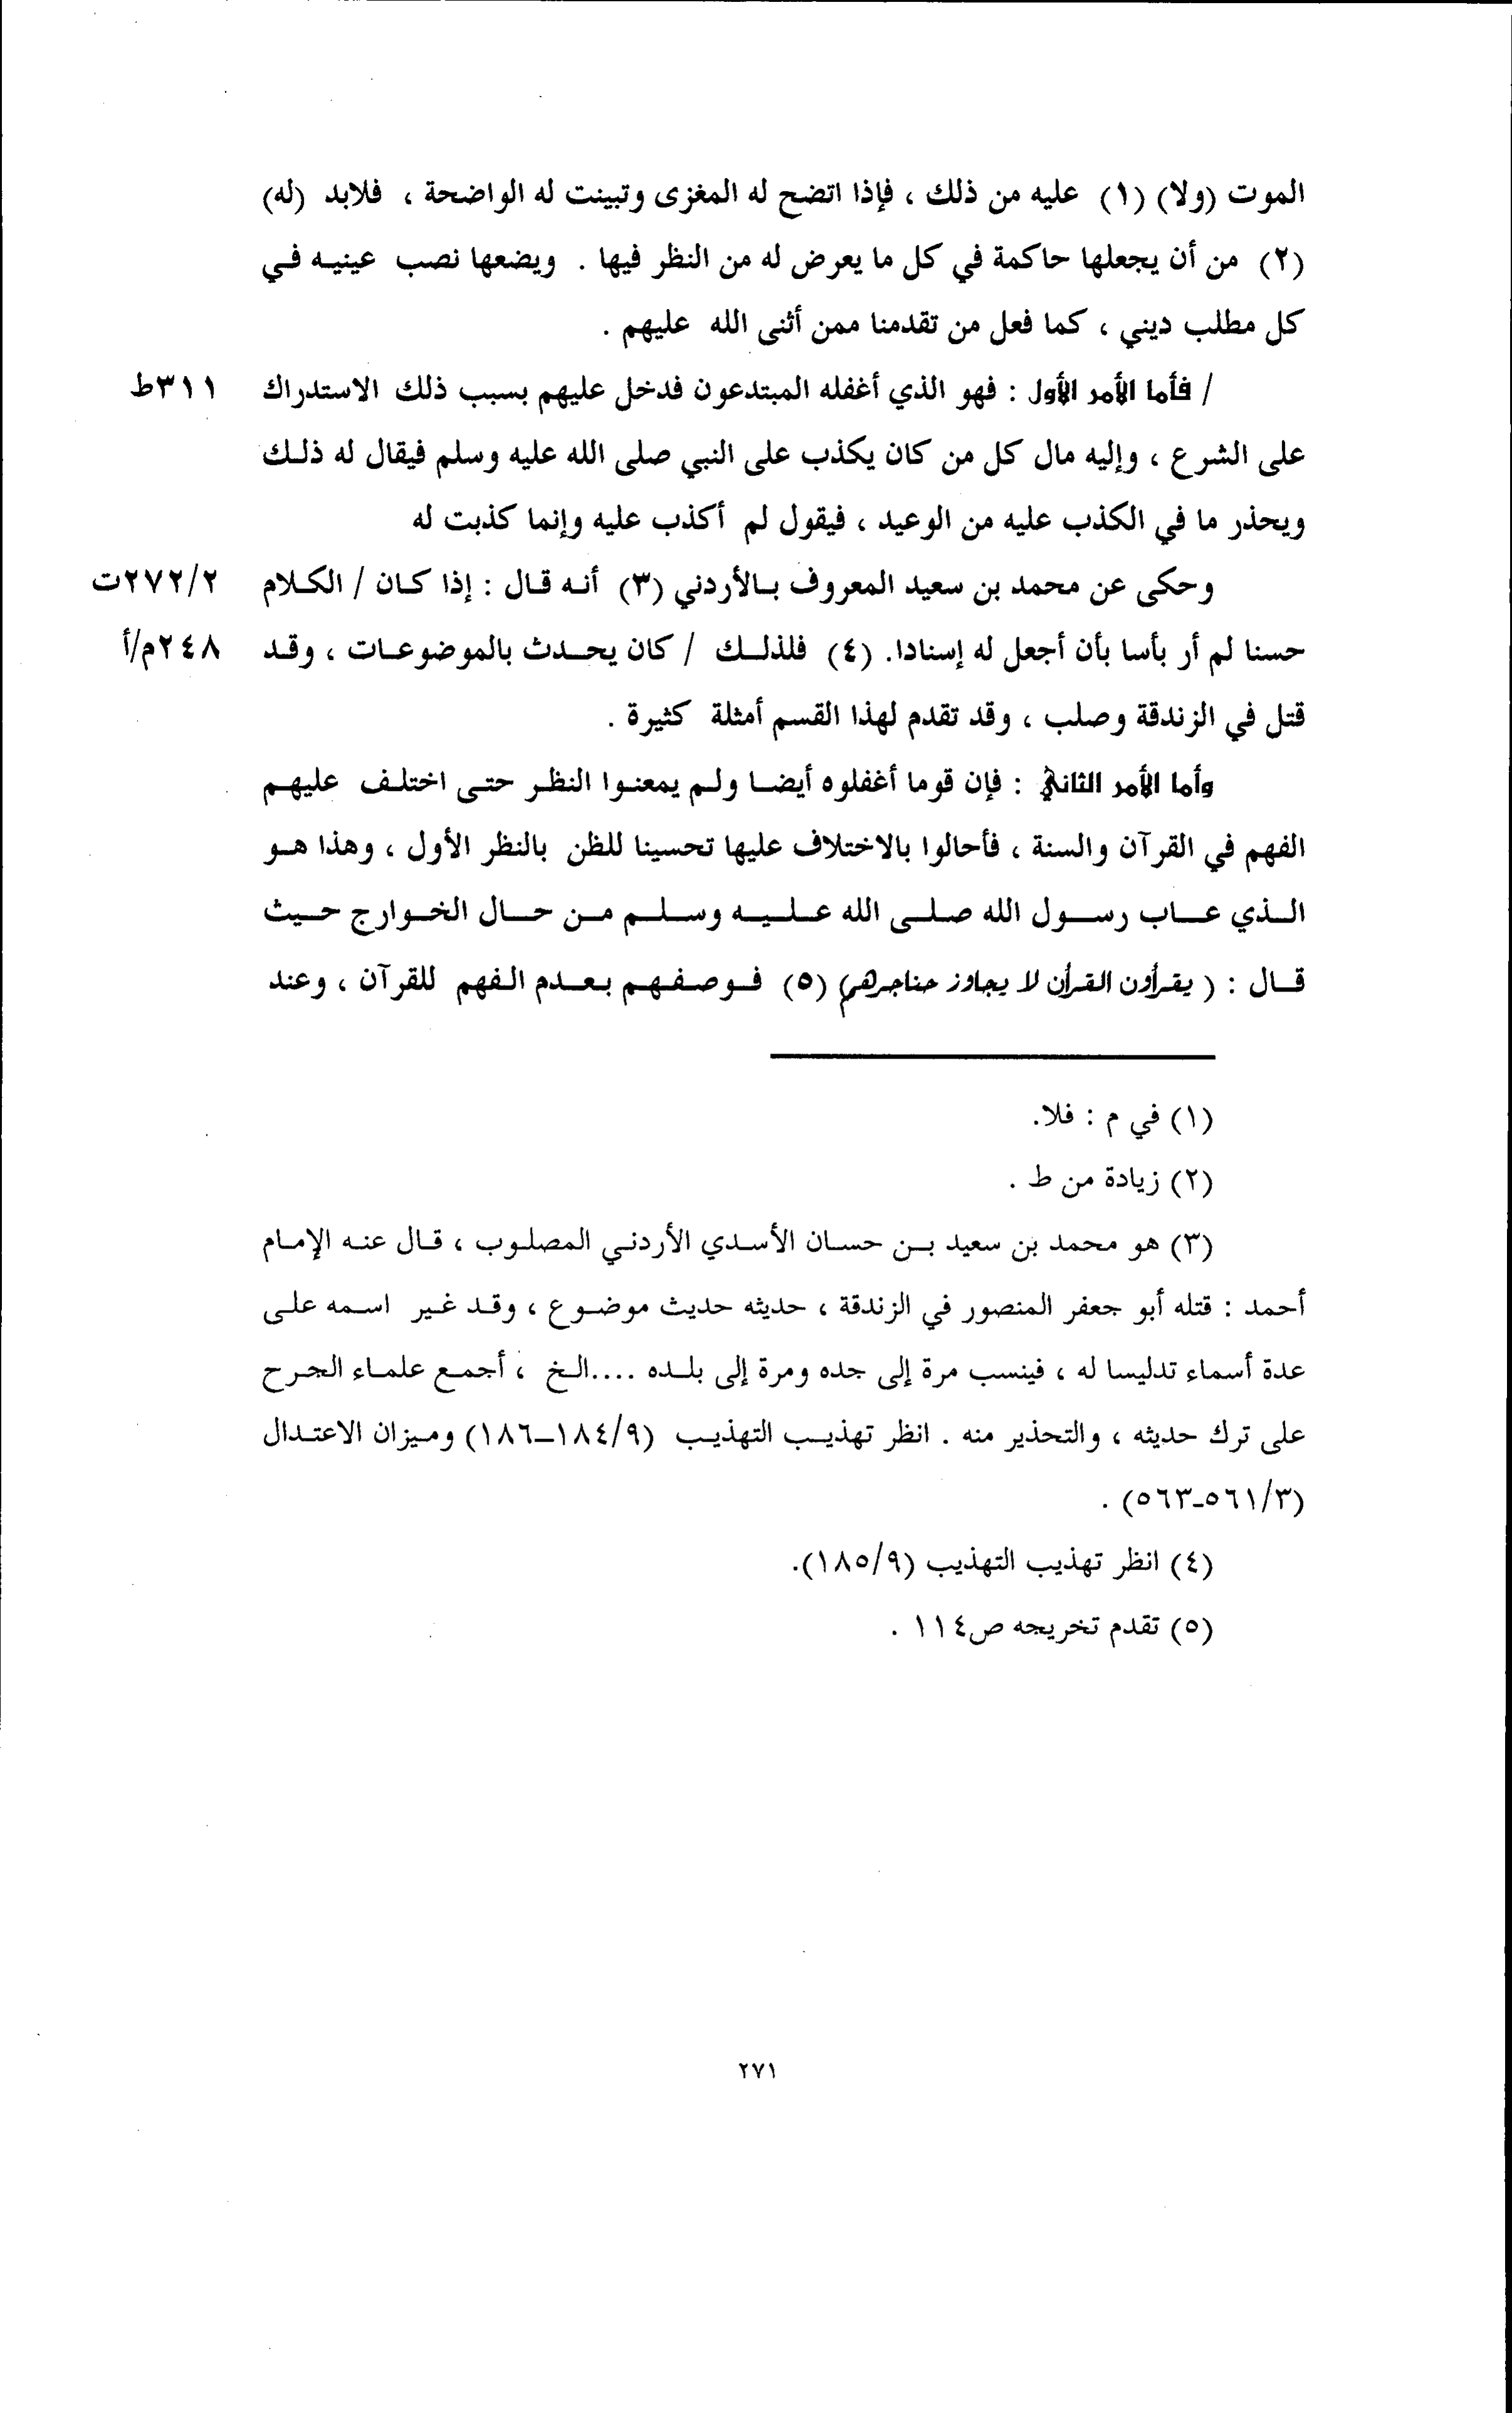 الموت (ولا) (١) عليه من ذلك ، فإذا اتضح له المغزى وتبينت له الواضحة ، فلابد (له)
(٢) من أن يجعلها حاكمة في كل ما يعرض له من النظر فيها . ويضعها نصب عينيه في
كل مطلب ديني ، كما فعل من تقدمنا ممن أثنى الله عليهم .
/ فأما الأمر الأول : فهو الذي أغفله المبتدعون فدخل عليهم بسبب ذلك الاستدراك ٣١١ط
على الشرع ، وإليه مال كل من كان يكذب على النبي صلى الله عليه وسلم فيقال له ذلك
ويحذر ما في الكذب عليه من الوعيد ، فيقول لم أكذب عليه وإنما كذبت له
وحكى عن محمد بن سعيد المعروف بالأردني (٣) أنه قال : إذا كان / الكلام ٢٧٢/٢ت
حسنا لم أر بأسا بأن أجعل له إسنادا. (٤) فلذلك / كان يحدث بالموضوعات ، وقد ٢٤٨م/أ
قتل في الزندقة وصلب ، وقد تقدم لهذا القسم أمثلة كثيرة .
وأما الأمر الثاني : فإن قوما أغفلوه أيضا ولم يمعنوا النظر حتى اختلف عليهم
الفهم في القرآن والسنة ، فأحالوا بالاختلاف عليها تحسينا للظن بالنظر الأول ، وهذا هو
الذي عاب رسول الله صلى الله عليه وسلم من حال الخوارج حيث
قال : ( يقرأون القرأن لا يجاوز حناجرهم) (٥) فوصفهم بعدم الفهم للقرآن ، وعند
(١) في م : فلا.
(٢) زيادة من ط .
(٣) هو محمد بن سعيد بن حسان الأسدي الأردني المصلوب ، قال عنه الإمام
أحمد : قتله أبو جعفر المنصور في الزندقة ، حديثه حديث موضوع ، وقد غير اسمه على
عدة أسماء تدليسا له ، فينسب مرة إلى جده ومرة إلى بلده ....الخ ، أجمع علماء الجرح
على ترك حديثه ، والتحذير منه . انظر تهذيب التهذيب (٩/١٨٤-١٨٦) وميزان الاعتدال
(٣/٥٦١-٥٦٣) .
(٤) انظر تهذيب التهذيب (٩/١٨٥).
(٥) تقدم تخريجه ص١١٤ .
٢٧١